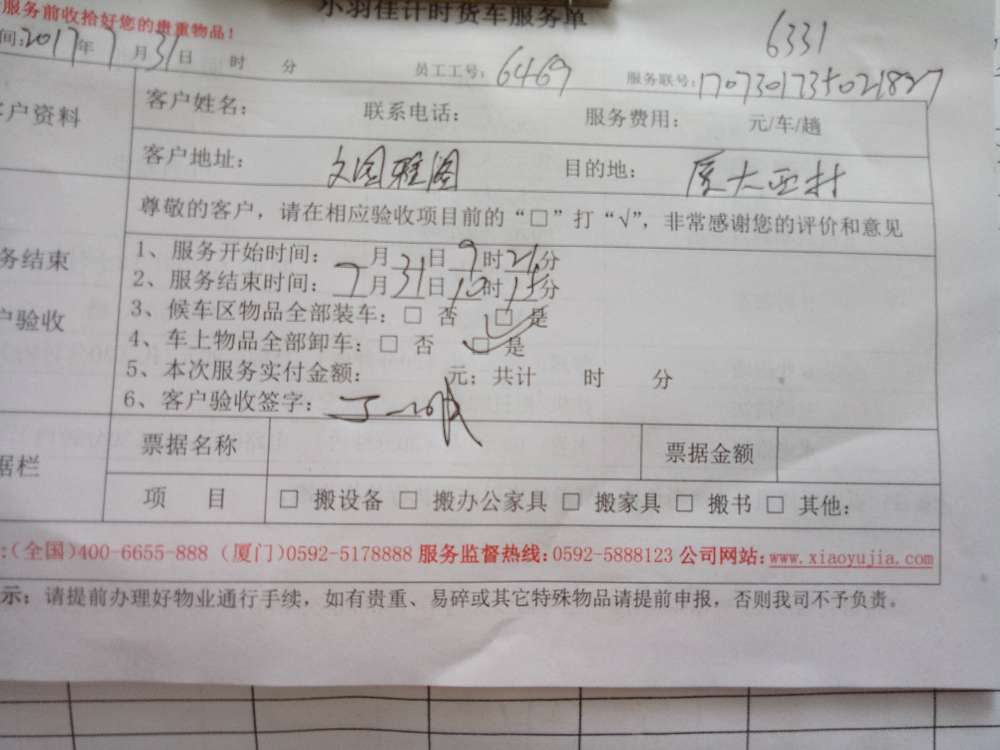 小羽佳计时货车服务单
服务前收拾好您的贵重物品！
6331
间：2017年7月31日 时 分 员工工号：6469 服务联号：1707301735021827
客户资料 客户姓名： 联系电话： 服务费用： 元/车/趟
客户地址：文园雅阁 目的地：厦大西村
尊敬的客户，请在相应验收项目前的“□”打“√”，非常感谢您的评价和意见
务结束
户验收
1、服务开始时间： 月 日9时21分
2、服务结束时间：7月31日10时15分
3、候车区物品全部装车：□ 否 □ 是
4、车上物品全部卸车：□ 否 □ 是
5、本次服务实付金额： 元；共计 时 分
6、客户验收签字：
据栏 票据名称 票据金额
项 目 □ 搬设备 □ 搬办公家具 □ 搬家具 □ 搬书 □ 其他：
:(全国)400-6655-888 (厦门)0592-5178888 服务监督热线：0592-5888123 公司网站：www.xiaoyujia.com
示：请提前办理好物业通行手续，如有贵重、易碎或其它特殊物品请提前申报，否则我司不予负责。